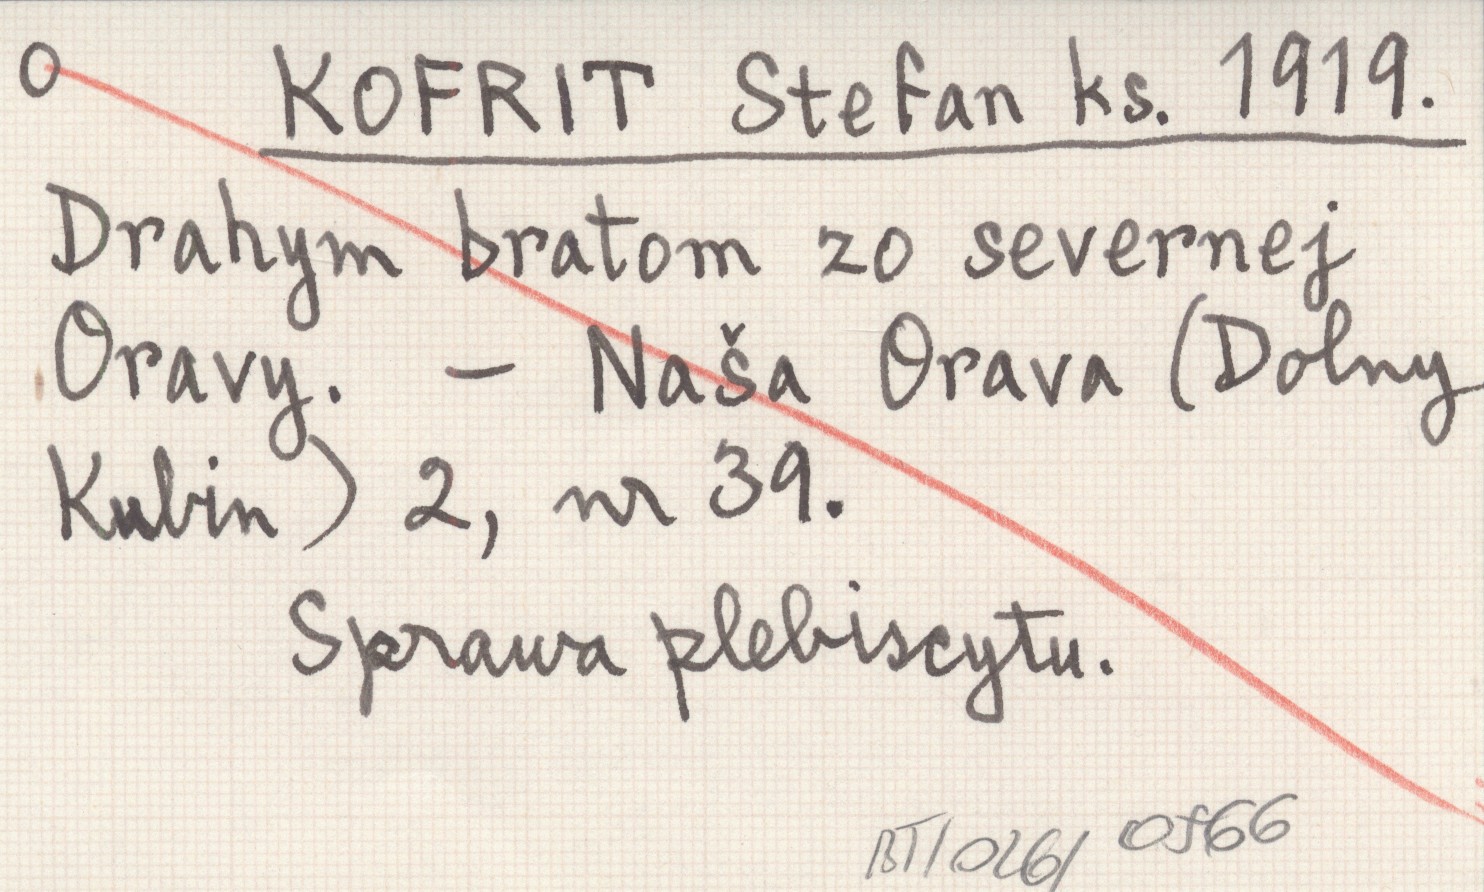 O KOFRIT Stefan ks. 1919.
Drahym bratom zo severnej
Oravy. – Naša Orava (Dolny
Kubin) 2, nr 39.
Sprawa plebiscytu.
BT/026/ 0566